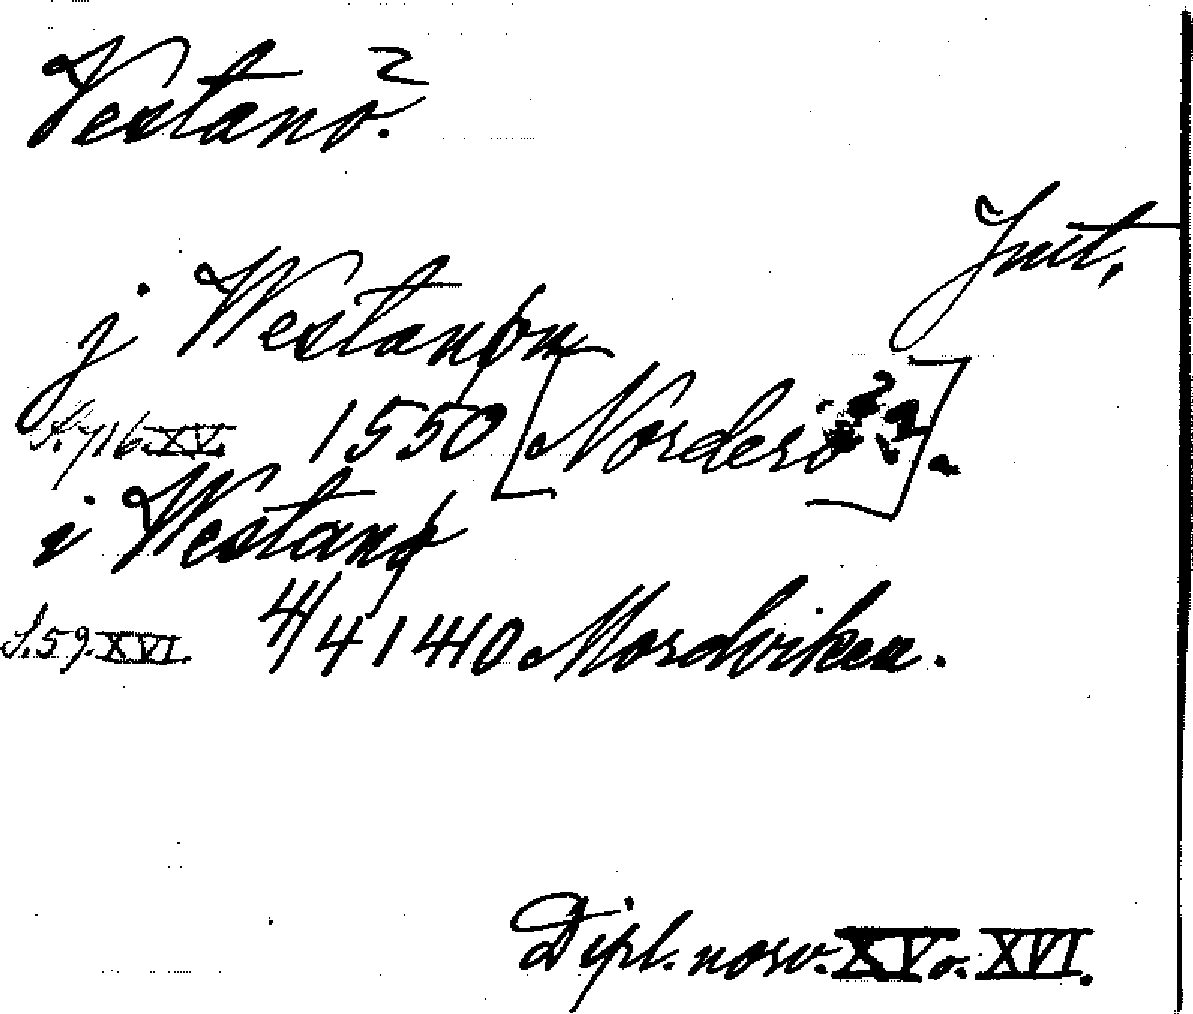 Vestanö.
Jmt.
j Westanøm
S. 716. XV. 1550 [Norderö].
i Westanø
S. 59. XVI. 4/4 1440 Mordviken.
Dipl. norv. XV o. XVI.